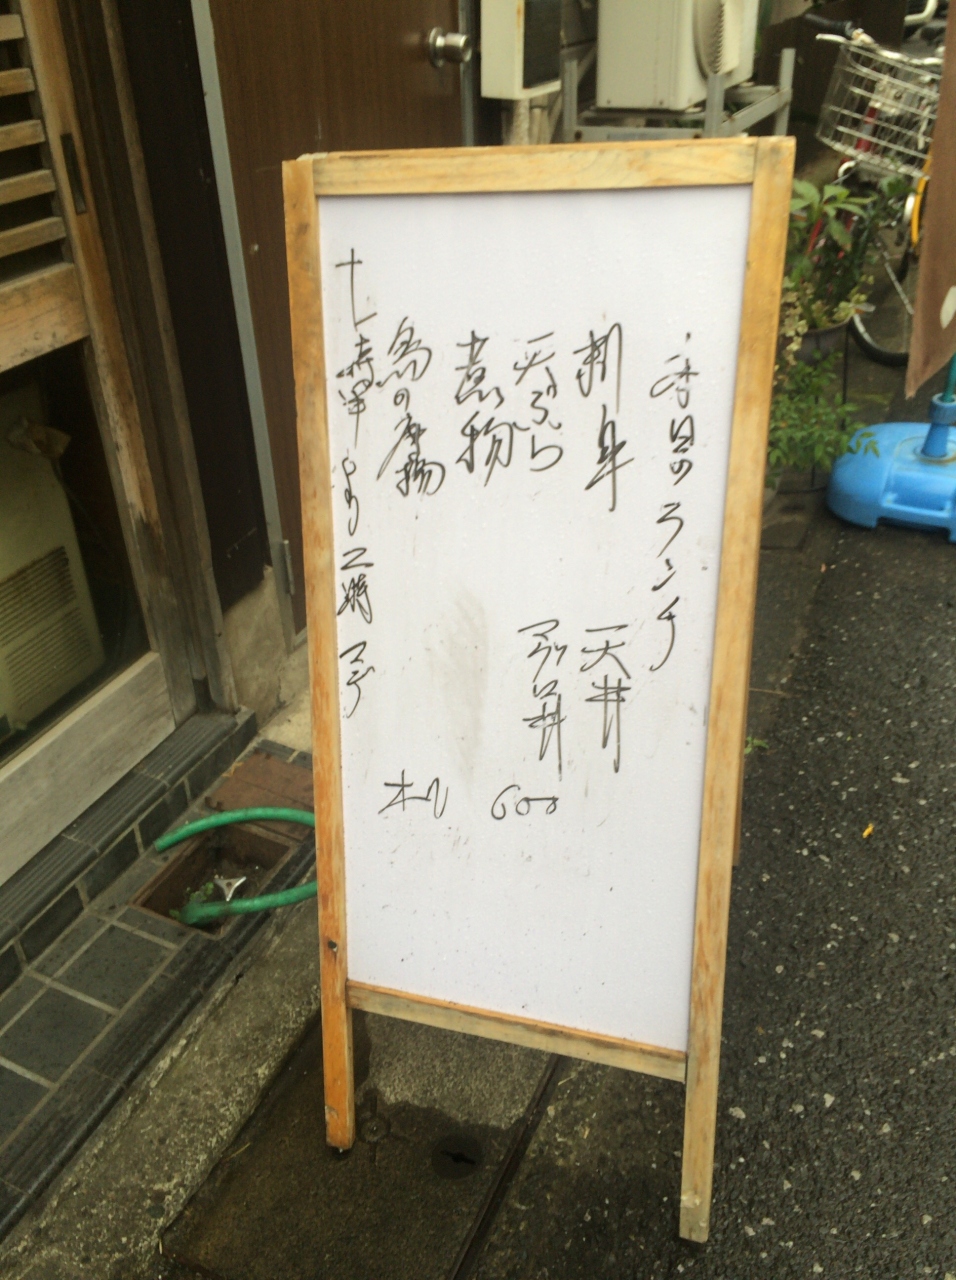 本日のランチ
刺身
天ぷら
煮物
鳥の唐揚
天丼
マグロ丼
600
十一時半より二時マデ